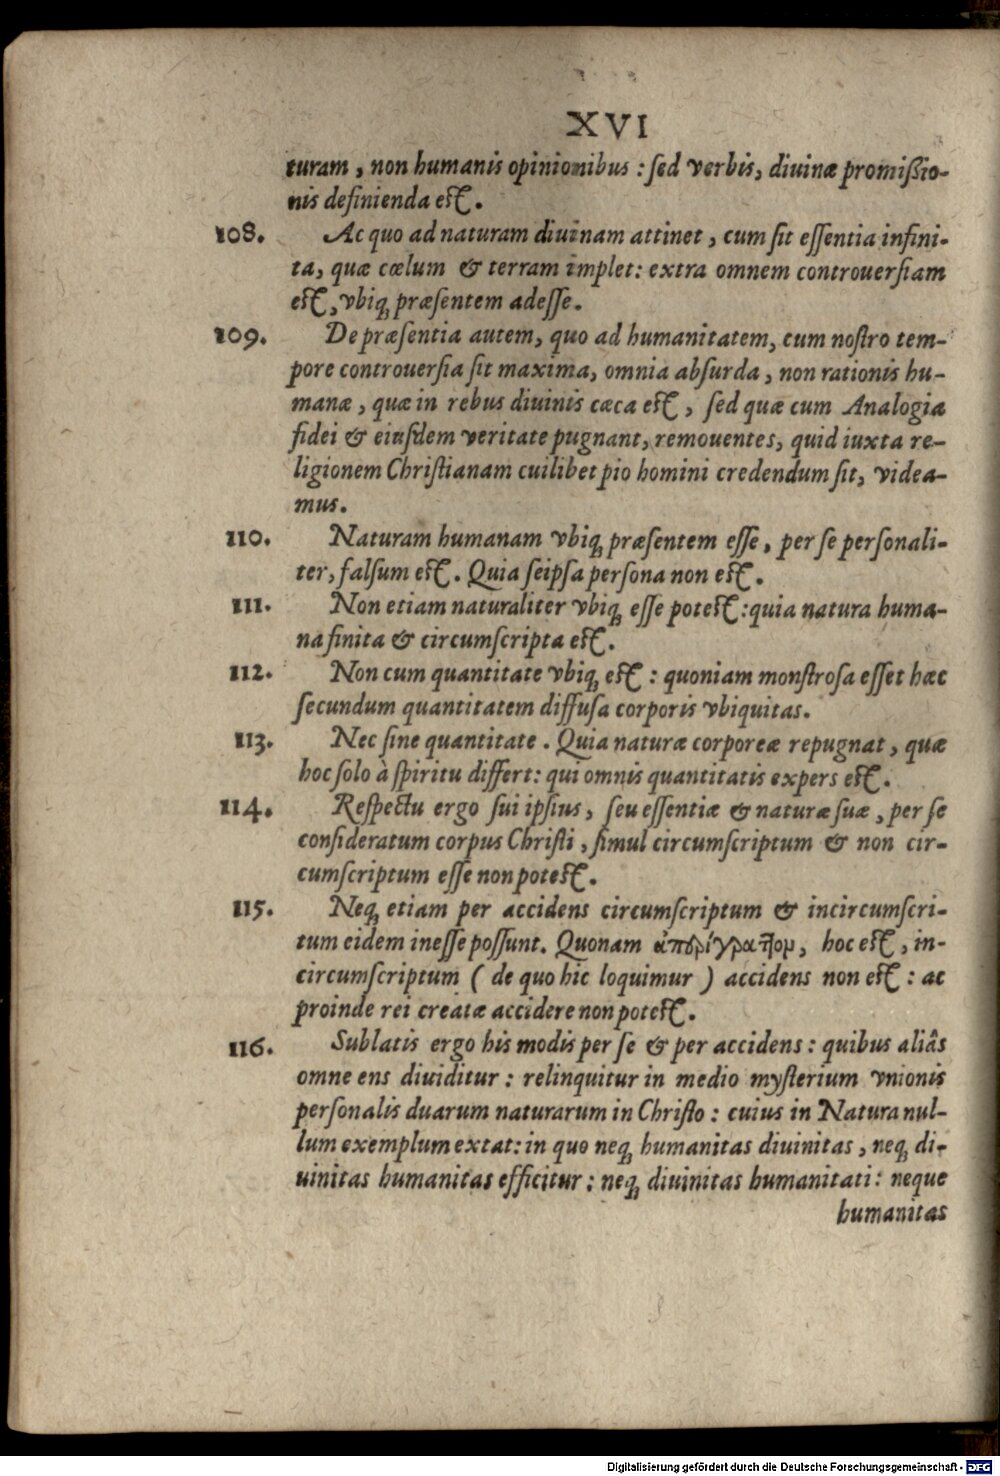 XVI
turam, non humanis opinionibus : sed verbis, diuinæ promißio-
nis definienda est.
108. Ac quo ad naturam diuinam attinet, cum sit essentia infini-
ta, quæ cœlum & terram implet: extra omnem controuersiam
est, vbiq; præsentem adesse.
109. De præsentia autem, quo ad humanitatem, cum nostro tem-
pore controuersia sit maxima, omnia absurda, non rationis hu-
manæ, quæ in rebus diuinis cæca est, sed quæ cum Analogia
fidei & eiusdem veritate pugnant, remouentes, quid iuxta re-
ligionem Christianam cuilibet pio homini credendum sit, videa-
mus.
110. Naturam humanam vbiq; præsentem esse, per se personali-
ter, falsum est. Quia seipsa persona non est.
111. Non etiam naturaliter vbiq; esse potest: quia natura huma-
na finita & circumscripta est.
112. Non cum quantitate vbiq; est : quoniam monstrosa esset hæc
secundum quantitatem diffusa corporis vbiquitas.
113. Nec sine quantitate. Quia naturæ corporeæ repugnat, quæ
hoc solo à spiritu differt: qui omnis quantitatis expers est.
114. Respectu ergo sui ipsius, seu essentiæ & naturæ suæ, per se
consideratum corpus Christi, simul circumscriptum & non cir-
cumscriptum esse non potest.
115. Neq; etiam per accidens circumscriptum & incircumscri-
tum eidem inesse possunt. Quonam ἀπερίγραπτομ, hoc est, in-
circumscriptum ( de quo hic loquimur ) accidens non est : ac
proinde rei creatæ accidere non potest.
116. Sublatis ergo his modis per se & per accidens : quibus aliâs
omne ens diuiditur : relinquitur in medio mysterium vnionis
personalis duarum naturarum in Christo : cuius in Natura nul-
lum exemplum extat: in quo neq; humanitas diuinitas, neq; di-
uinitas humanitas efficitur : neq; diuinitas humanitati : neque
humanitas
Digitalisierung gefördert durch die Deutsche Forschungsgemeinschaft - DFG